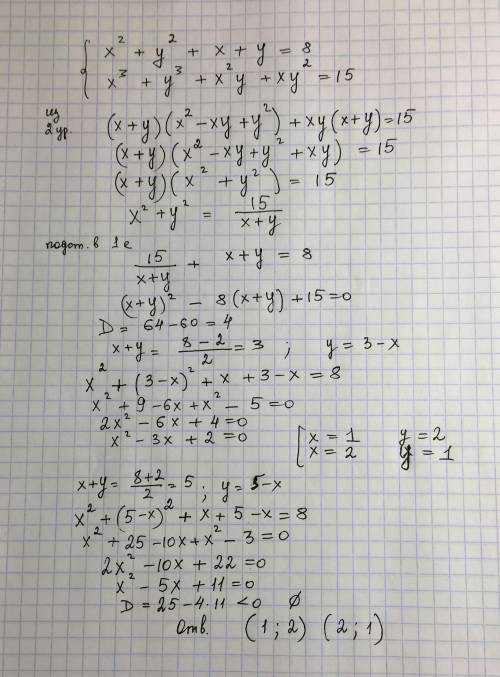 { x² + y² + x + y = 8
x³ + y³ + x²y + xy² = 15
из
2 ур. (x+y)(x² - xy + y²) + xy(x+y) = 15
(x+y)(x² - xy + y² + xy) = 15
(x+y)(x² + y²) = 15
x² + y² = 15/(x+y)
подст. в 1е
15/(x+y) + x+y = 8
(x+y)² - 8(x+y) + 15 = 0
D = 64 - 60 = 4
x+y = (8-2)/2 = 3 ; y = 3 - x
x² + (3-x)² + x + 3 - x = 8
x² + 9 - 6x + x² - 5 = 0
2x² - 6x + 4 = 0
x² - 3x + 2 = 0 [ x = 1 y = 2
x = 2 y = 1
x+y = (8+2)/2 = 5 ; y = 5 - x
x² + (5-x)² + x + 5 - x = 8
x² + 25 - 10x + x² - 3 = 0
2x² - 10x + 22 = 0
x² - 5x + 11 = 0
D = 25 - 4·11 < 0 Ø
Отв. (1 ; 2) (2 ; 1)